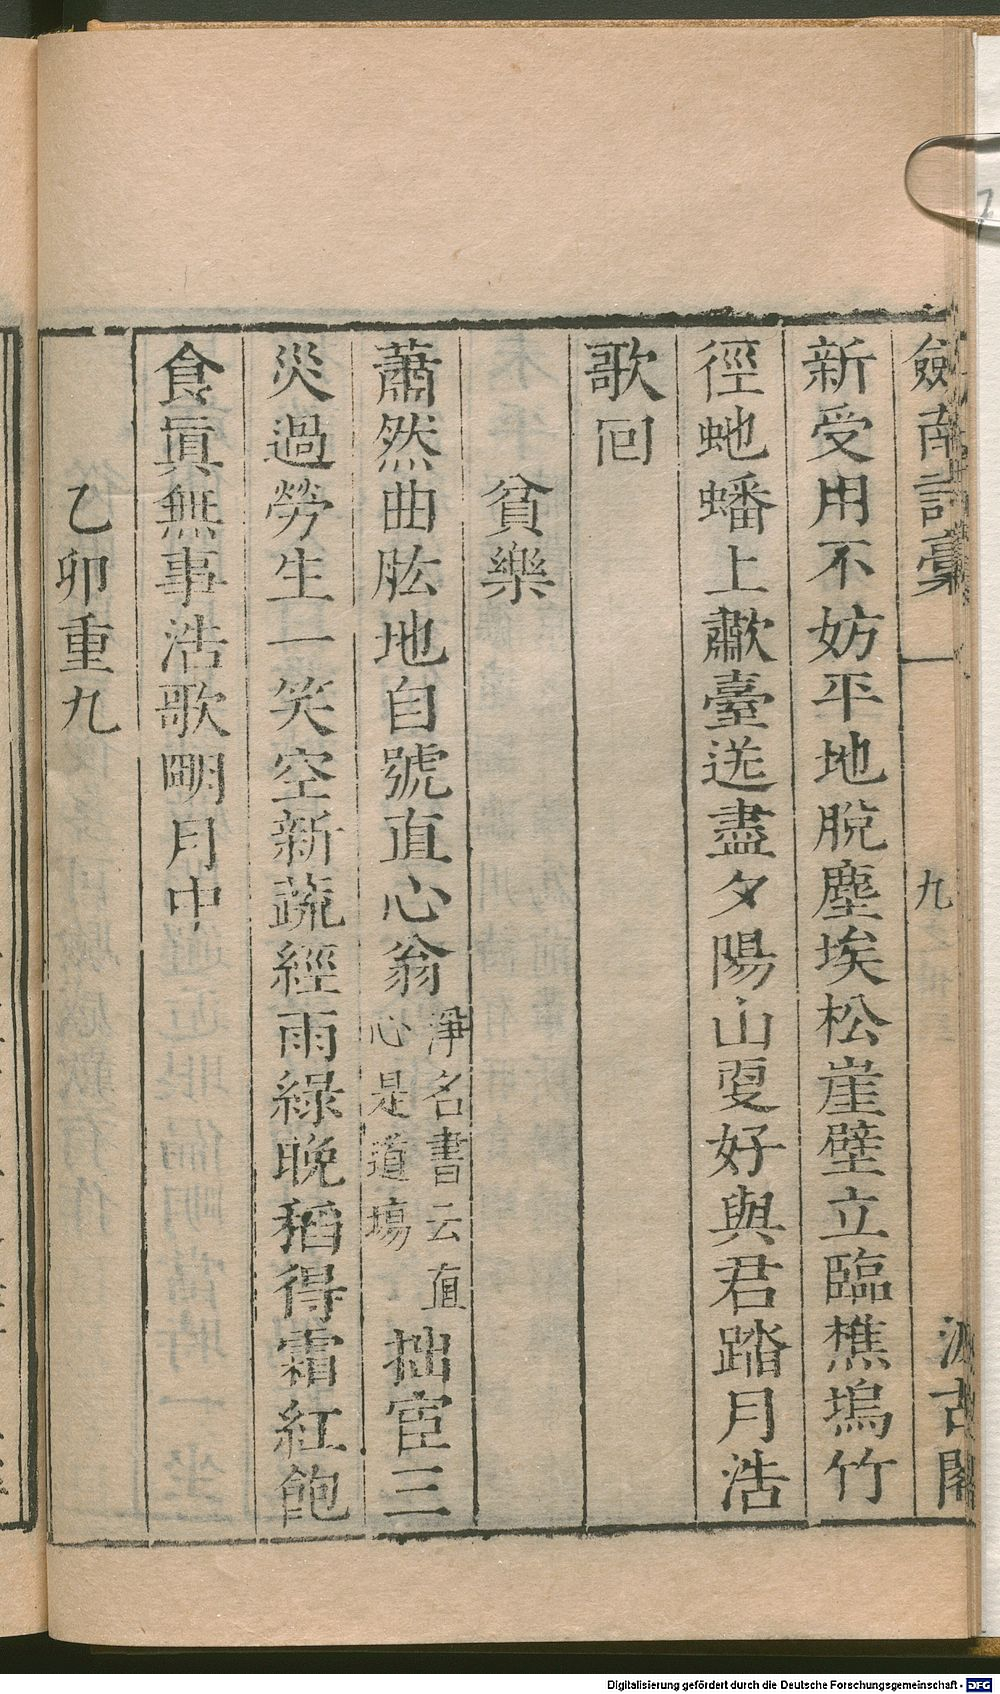 僉南詞稾 一 九 汲古閣
新受用不妨平地脫塵埃松崖壁立臨樵塢竹
徑虵蟠上歗臺送盡夕陽山更好與君踏月浩
歌囘
貧樂
蕭然曲肱地自號直心翁
淨名書云直
心是道塲
拙宦三
災過勞生一笑空新蔬經雨綠晚稻得霜紅飽
食眞無事浩歌明月中
乙卯重九
Digitalisierung gefördert durch die Deutsche Forschungsgemeinschaft - DFG